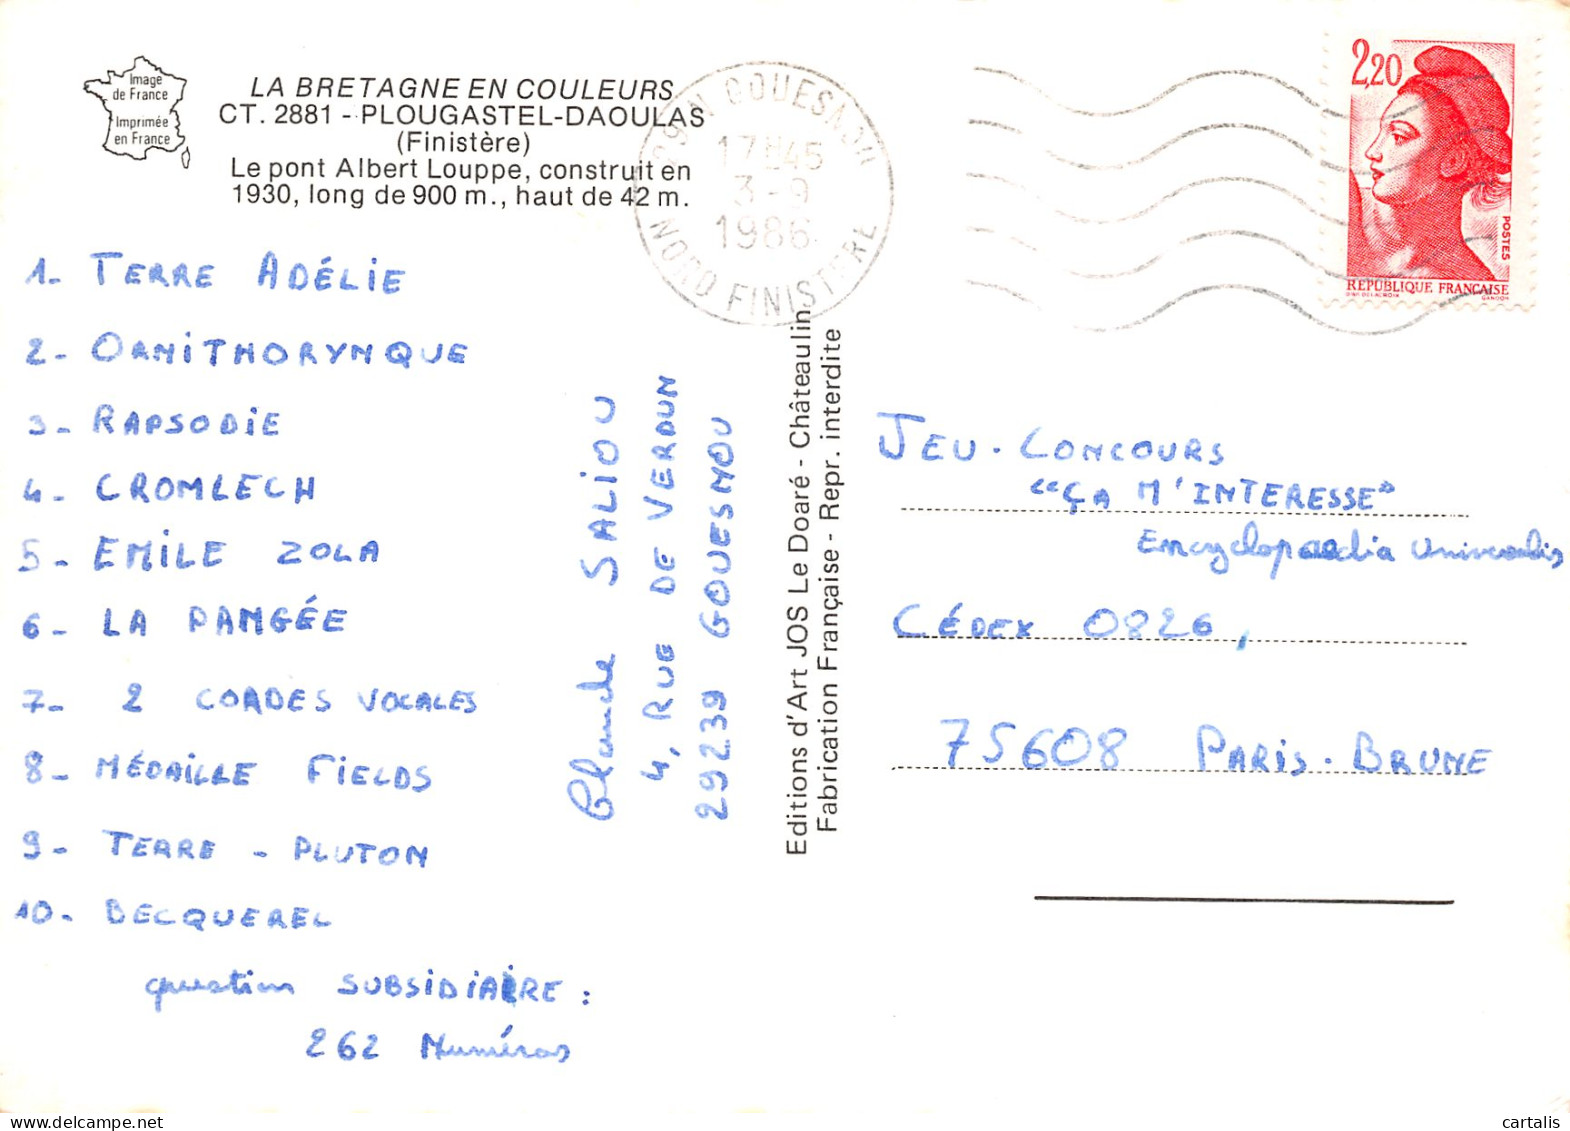 Image
de France
Imprimée
en France
LA BRETAGNE EN COULEURS
CT. 2881 - PLOUGASTEL-DAOULAS
(Finistère)
Le pont Albert Louppe, construit en
1930, long de 900 m., haut de 42 m.
29 N GOUESNOU
17H45
3-9
1986
NORD FINISTERE
2,20
POSTES
REPUBLIQUE FRANÇAISE
D'AP. DELACROIX GANDON
1- TERRE ADÉLIE
2- ORNITHORYNQUE
3- RAPSODIE
4- CROMLECH
5- EMILE ZOLA
6- LA PANGÉE
7- 2 CORDES VOCALES
8- MÉDAILLE FIELDS
9- TERRE - PLUTON
10- BECQUEREL
question SUBSIDIAIRE :
262 Numéros
Claude SALIOU
4, RUE DE VERDUN
29239 GOUESNOU
Editions d'Art JOS Le Doaré - Châteaulin
Fabrication Française - Repr. interdite
JEU - CONCOURS
"ÇA M'INTERESSE"
Encyclopaedia Universalis
CÉDEX 0826,
75608 PARIS - BRUNE
cartalis